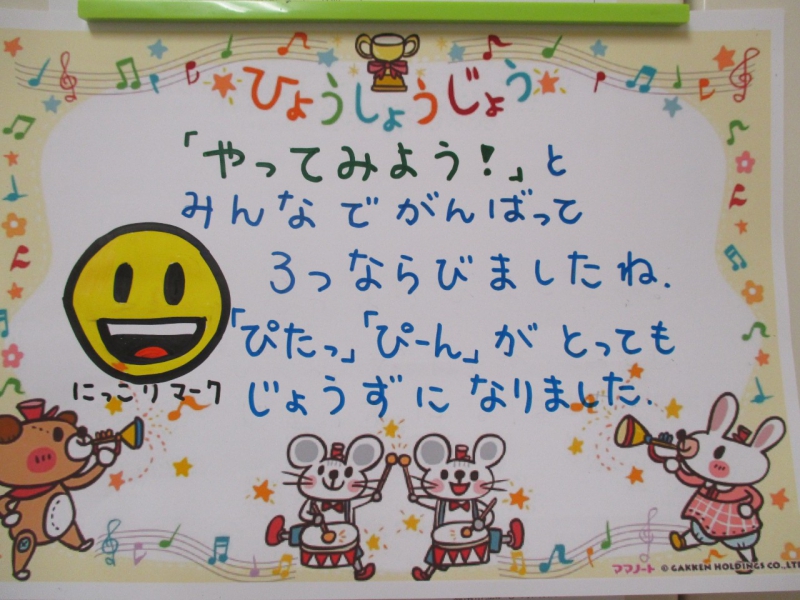 ひょうしょうじょう
「やってみよう!」と
みんなでがんばって
3つならびましたね.
「ぴたっ」「ぴーん」がとっても
じょうずになりました.
にっこりマーク
ママノート © GAKKEN HOLDINGS CO.,LTD